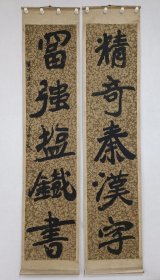 精奇秦漢字
富强盐鐵書